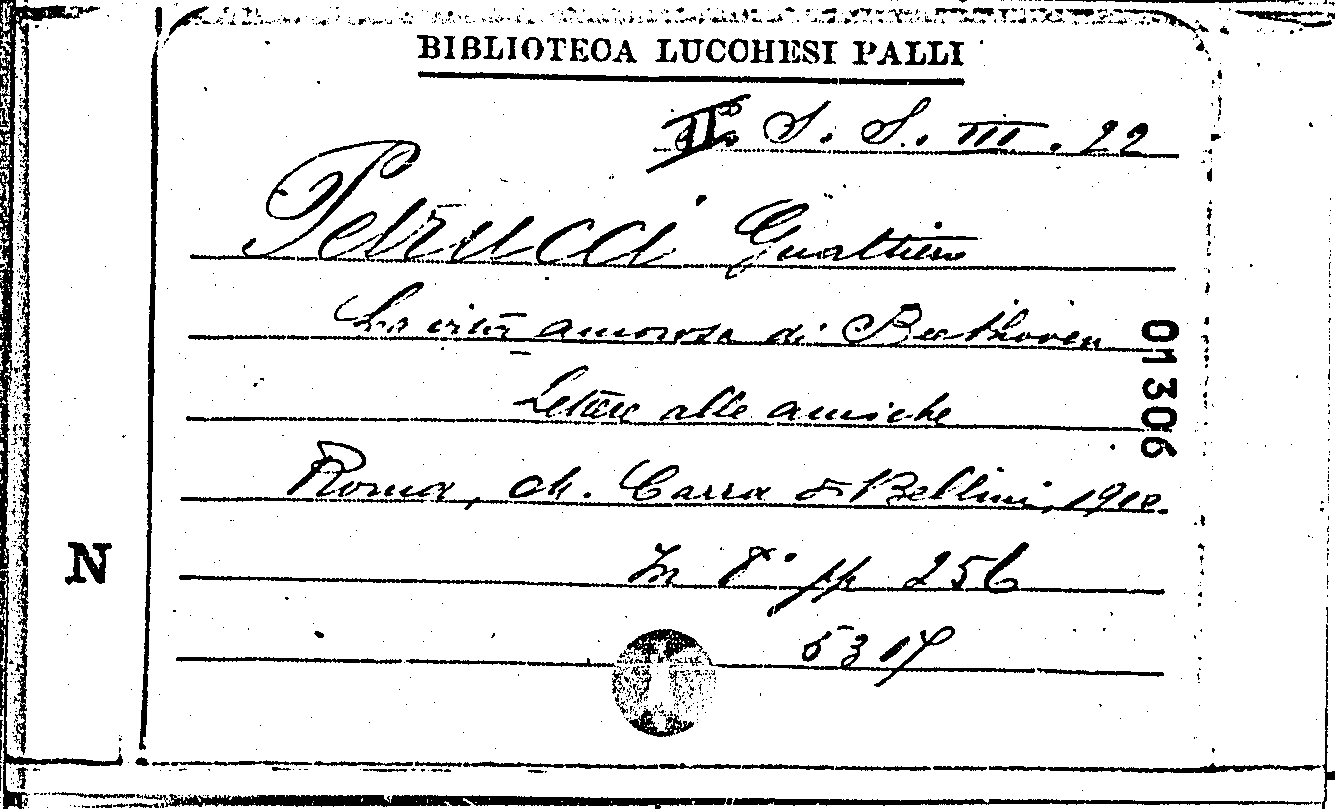 BIBLIOTECA LUCCHESI PALLI
II. S. S. III. 22
Petrucci Gualtiero
La vita amorosa di Beethoven
Lettere alle amiche
01306
Roma, Carra & Bellini, 1910.
N
In 8° pp 256
5317